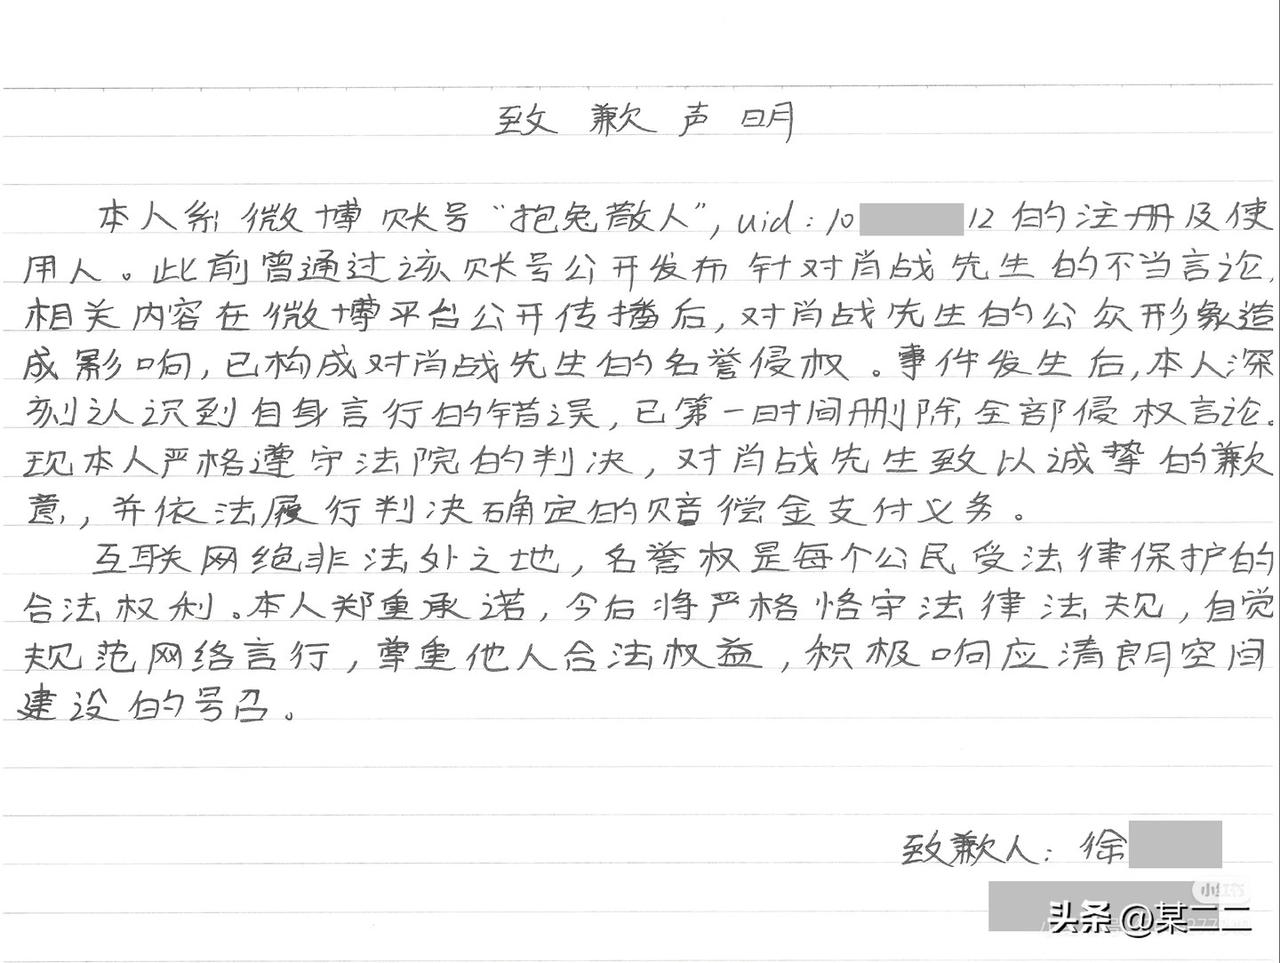 致歉声明
本人系微博账号“抱兔散人”,uid:10 12的注册及使
用人。此前曾通过该账号公开发布针对肖战先生的不当言论,
相关内容在微博平台公开传播后,对肖战先生的公众形象造
成影响,已构成对肖战先生的名誉侵权。事件发生后,本人深
刻认识到自身言行的错误,已第一时间删除全部侵权言论。
现本人严格遵守法院的判决,对肖战先生致以诚挚的歉
意,并依法履行判决确定的赔偿金支付义务。
互联网绝非法外之地,名誉权是每个公民受法律保护的
合法权利。本人郑重承诺,今后将严格恪守法律法规,自觉
规范网络言行,尊重他人合法权益,积极响应清朗空间
建设的号召。
致歉人:徐
小红书
头条 @某二二